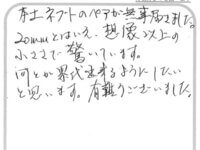 本土ネフトのペアが無事届きました。
20mmとはいえ、想像以上の
小ささで驚いています。
何とか累代まするようにしたい
と思います。有難うございました。